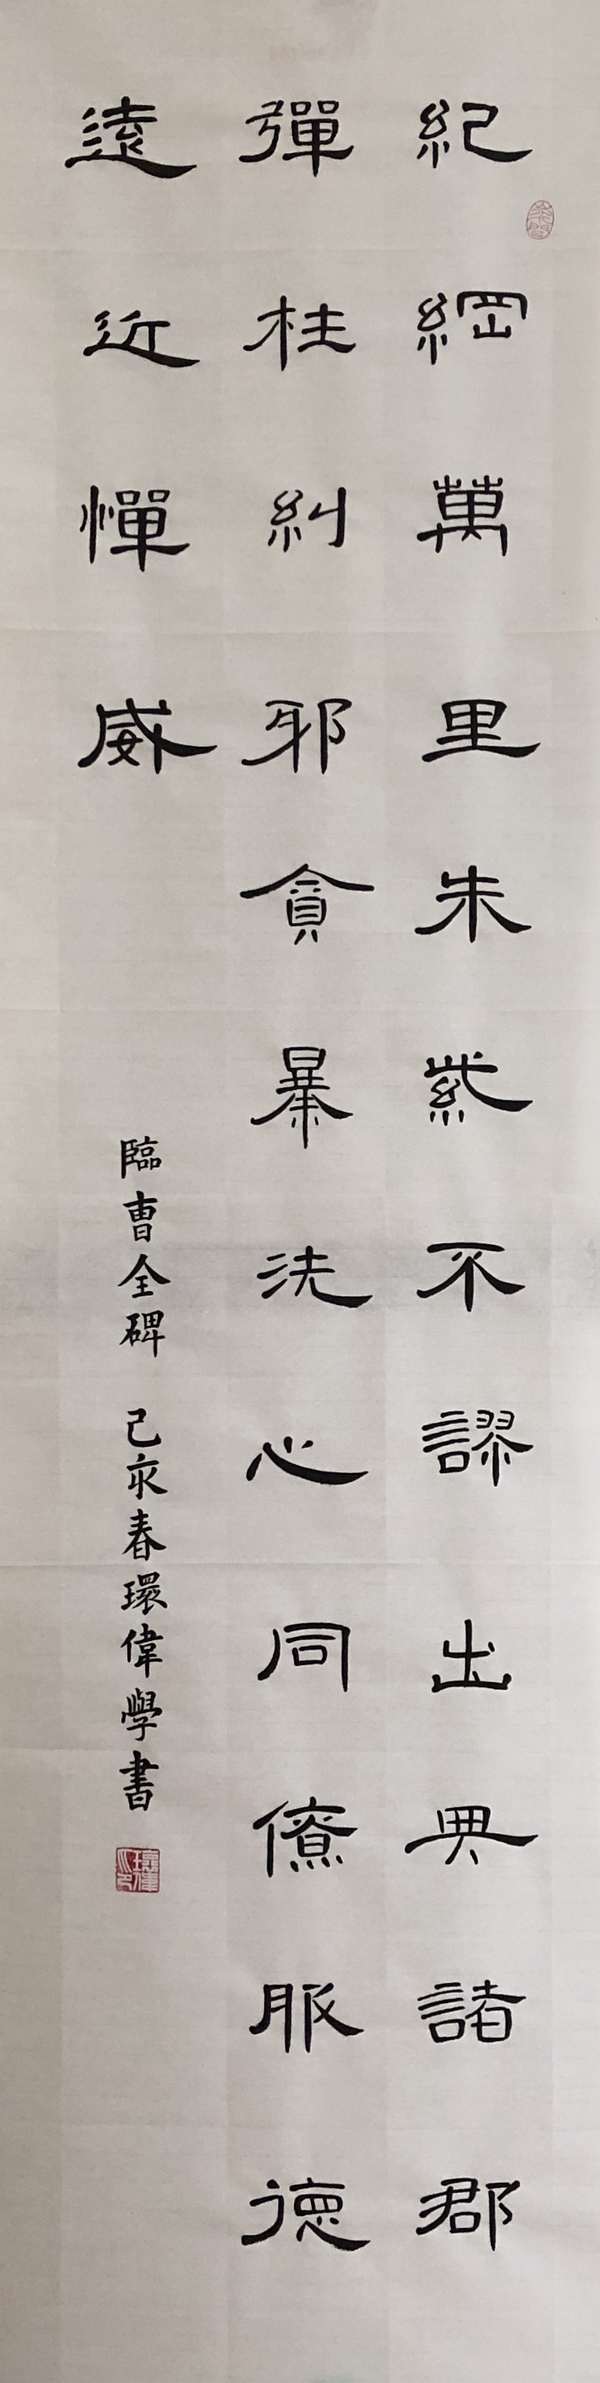 紀綱萬里朱紫不謬出典諸郡
彈枉糾邪貪暴洗心同僚服德
遠近憚威
臨曹全碑 己亥春環偉學書
環偉